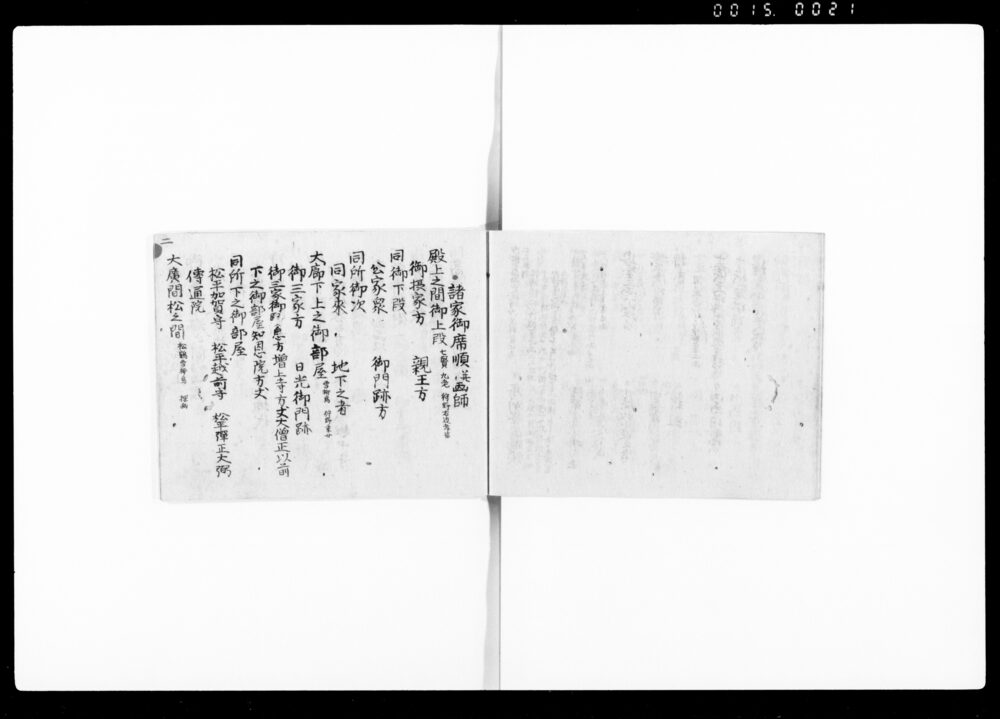 0015. 0021
諸家御席順 并画師
殿上之間御上段 七賢 九老 狩野右近孝信
御摂家方 親王方
同御下段
公家衆 御門跡方
同所御次
同家来 地下之者
大廊下上之御部屋 雪柳鳥 狩野
御三家方 日光御門跡
御三家御 恵方増上寺方丈大僧正以前
下之御部屋知恩院方丈
同所下之御部屋
松平加賀守 松平越前守 松平弾正大弼
傳通院
大廣間松之間 松鶴雪柳鳥
二